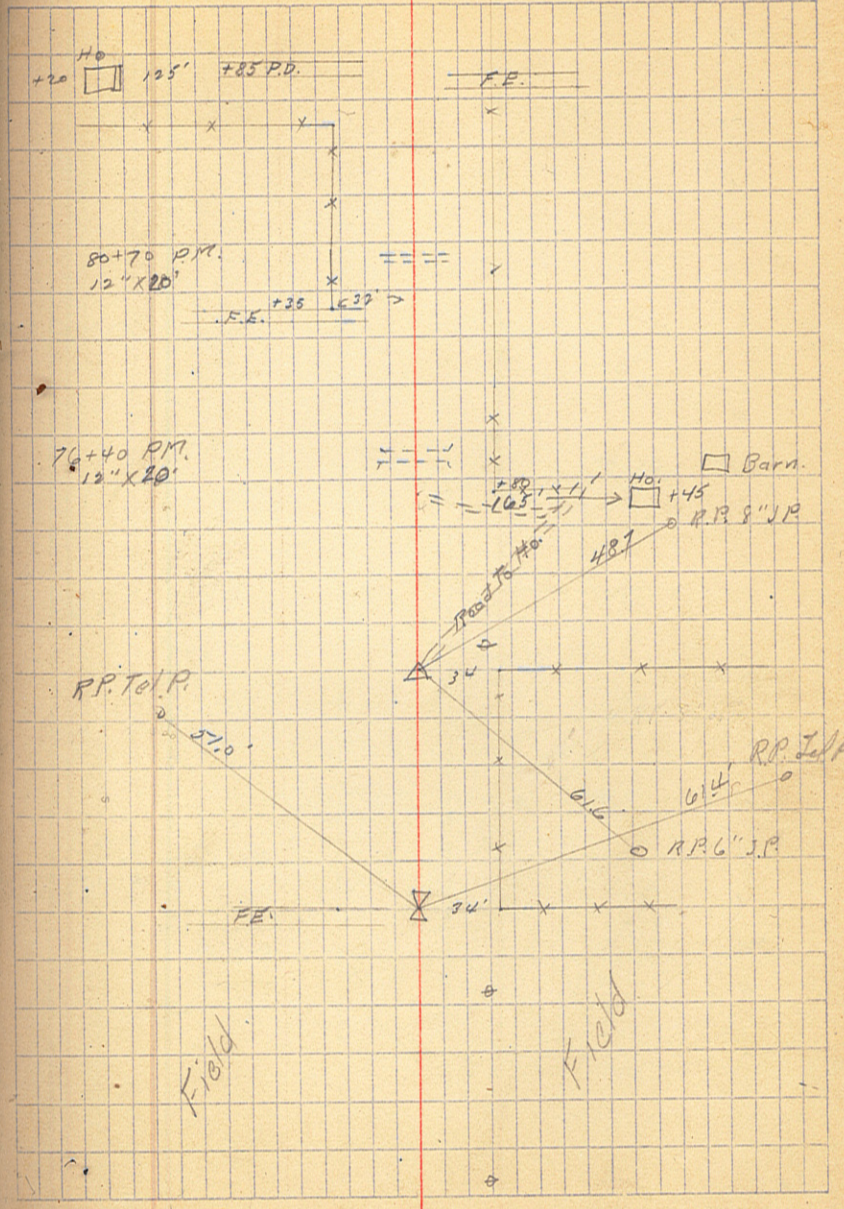 Ho
+20 125' +85 P.D.
F.E.
80+70 P.M.
12" X 20'
F.E. +35 <32'>
76+40 P.M.
12" X 20'
Barn.
+80
165'
Ho.
+45
R.P. 8" J.P.
48.7
Road To Ho.
34'
R.P. Tel. P.
51.0'
R.P. Tel P
61.4'
61.6'
R.P. 6" J.P.
F.E.
34'
Field
Field